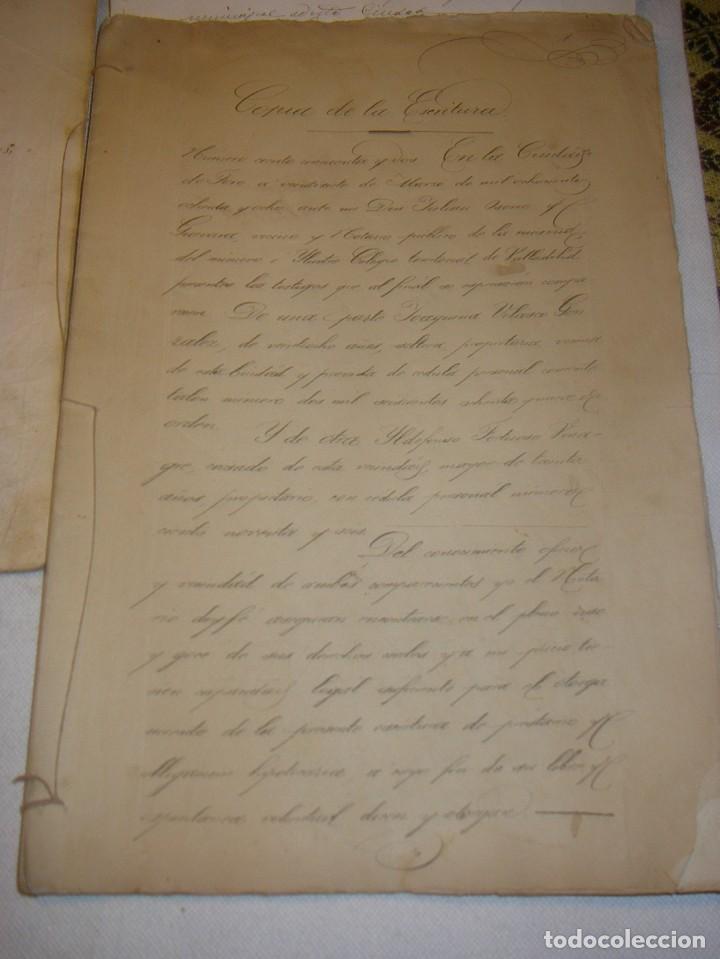 municipal de esta Ciudad
Copia de la Escritura
Numero ciento cincuenta y dos En la Ciudad
de Toro a veinticuatro de Marzo de mil ochocientos
ochenta y ocho ante mi Don Julian
vecino y Notario publico de la misma
del número é Ilustre Colegio territorial de Valladolid
presentes los testigos que al final se espresarán compa
recen De una parte Joaquina Velasco Gon
zalez, de veintiocho años, soltera, propietaria, vecina
de esta Ciudad y provista de cedula personal corriente
talon numero dos mil seiscientos ochenta y nueve de
orden. Y de otra Yldefonso Vina
gre, casado de esta vecindad, mayor de treinta
años propietario, con cedula personal número
ciento noventa y seis.
Del conocimiento
y vecindad de ambos comparecientes yo el Nota
rio doy fé aseguran encontrarse en el pleno uso
y goce de sus derechos civiles y a mi juicio tie
nen capacidad legal suficiente para el otorga
miento de la presente escritura de prestamo y
obligacion hipotecaria, a cuyo fin de su libre y
espontanea voluntad dicen y otorgan
todocoleccion.net